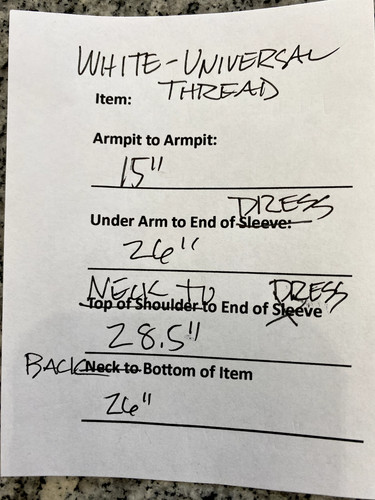 WHITE-UNIVERSAL
Item: THREAD
Armpit to Armpit:
15"
DRESS
Under Arm to End of Sleeve:
26"
NECK TO DRESS
Top of Shoulder to End of Sleeve
28.5"
BACK Neck to Bottom of Item
26"